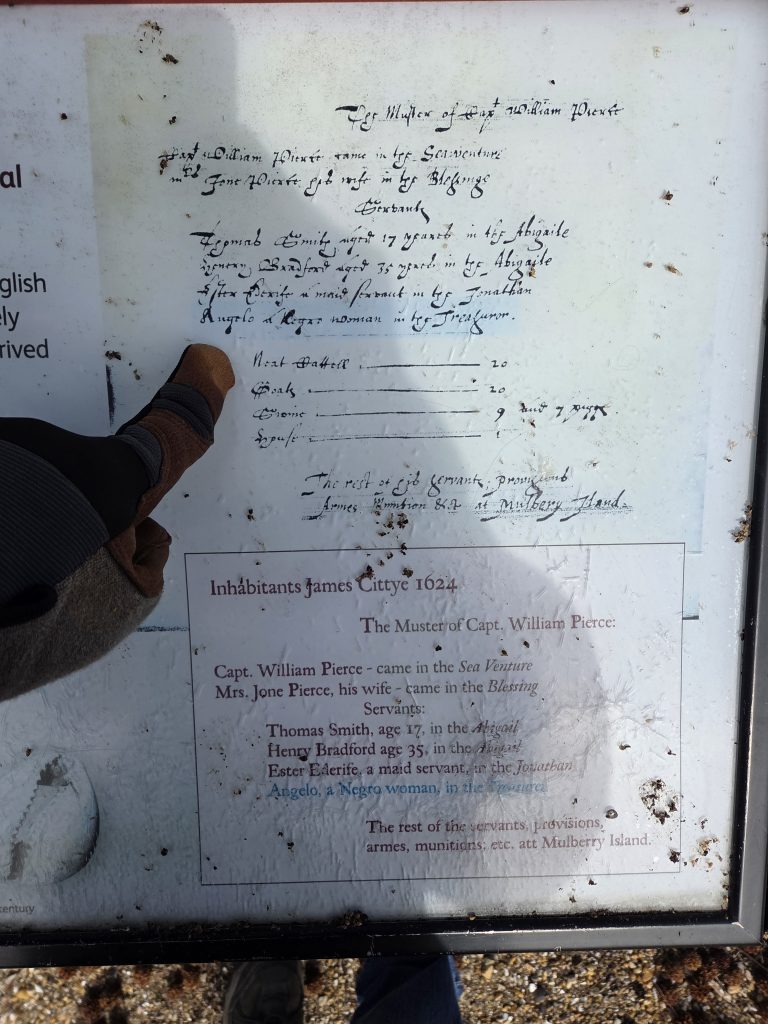 al
glish
ely
rived
The Muster of Capt William Pierce
Capt William Pierce came in the Seaventure
mrs Jone Pierce his wife in the Blessinge
Servants
Thomas Smith aged 17 yeares in the Abigaile
Henery Bradford aged 35 yeares in the Abigaile
Ester Ederife a maid servant in the Jonathan
Angelo a Negro woman in the Treasuror.
Neat Cattell 20
Goats 20
Swine 9 and 7 piggs.
House 1
The rest of his servants, provisions
Armes Munition &c at Mulbery Iland.
Inhabitants James Cittye 1624
The Muster of Capt. William Pierce:
Capt. William Pierce - came in the Sea Venture
Mrs. Jone Pierce, his wife - came in the Blessing
Servants:
Thomas Smith, age 17, in the Abigail
Henry Bradford age 35, in the Abigail
Ester Ederife, a maid servant, in the Jonathan
Angelo, a Negro woman, in the Treasurer
The rest of the servants, provisions,
armes, munitions, etc. att Mulberry Island.
entury